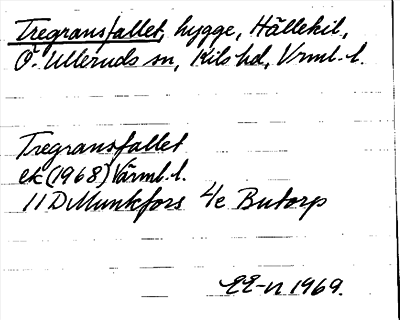 Tregransfallet, hygge, Hällekil,
Ö. Ulleruds sn, Kils hd, Vrml. l.
Tregransfallet
ek (1968) Värml. l.
11 D Munkfors 4e Butorp
EE-n 1969.